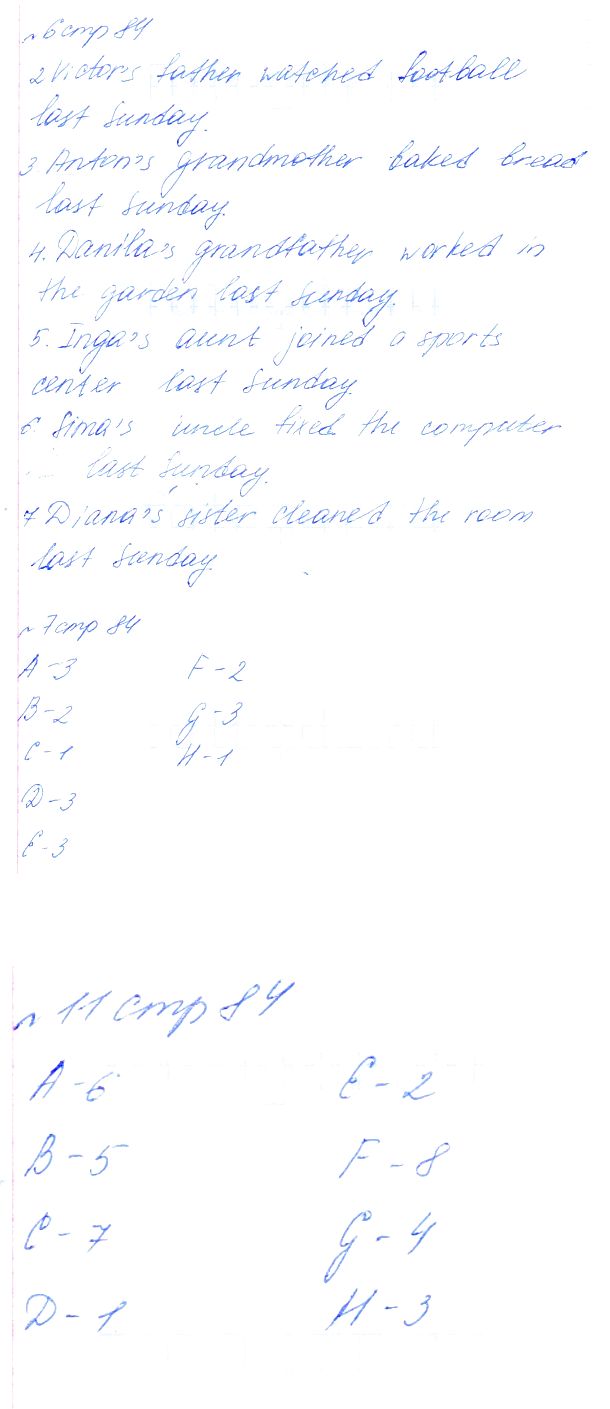 №6 стр 84
2 Victor's father watched football
last Sunday.
3 Anton's grandmother baked bread
last Sunday.
4. Danila's grandfather worked in
the garden last Sunday.
5. Inga's aunt joined a sports
center last Sunday.
6 Sima's uncle fixed the computer
last Sunday.
7 Diana's sister cleaned the room
last Sunday.
№7 стр 84
A-3 F-2
B-2 G-3
C-1 H-1
D-3
E-3
№11 стр 84
A-6 E-2
B-5 F-8
C-7 G-4
D-1 H-3